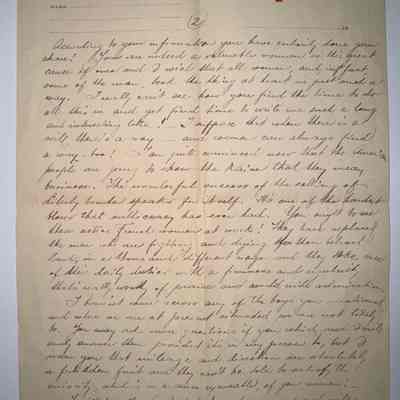 (2)
According to your information you have certainly done your
share! You are indeed a valuable woman in this great
cause of ours and I wish that all women, and in fact
some of the men, took the thing at heart in just such a
way. I really can't see how you find the time to do
all this in and yet find time to write me such a long
and interesting letter! I suppose that when there is a
will there's a way — and women can always find
a way, too! I am quite convinced now that the American
people are going to show the Kaiser that they mean
business. The wonderful success of the selling of
liberty bonds speaks for itself. It's one of the hardest
blows that militarism has ever had. You ought to see
these active French women at work! They have replaced
the men who are fighting and dying for their beloved
land in a thousand different ways and they take care
of the daily duties with a firmness and
that's well worthy of praise and world-wide admiration.
I haven't come across any of the boys you mentioned
and where we are at present situated we are not likely
to. You may ask me questions if you wish and I will
only answer them provided it's in my power to, but I
warn you that mileage and direction are absolutely
a forbidden fruit and they can't be told to satisfy the
curiosity